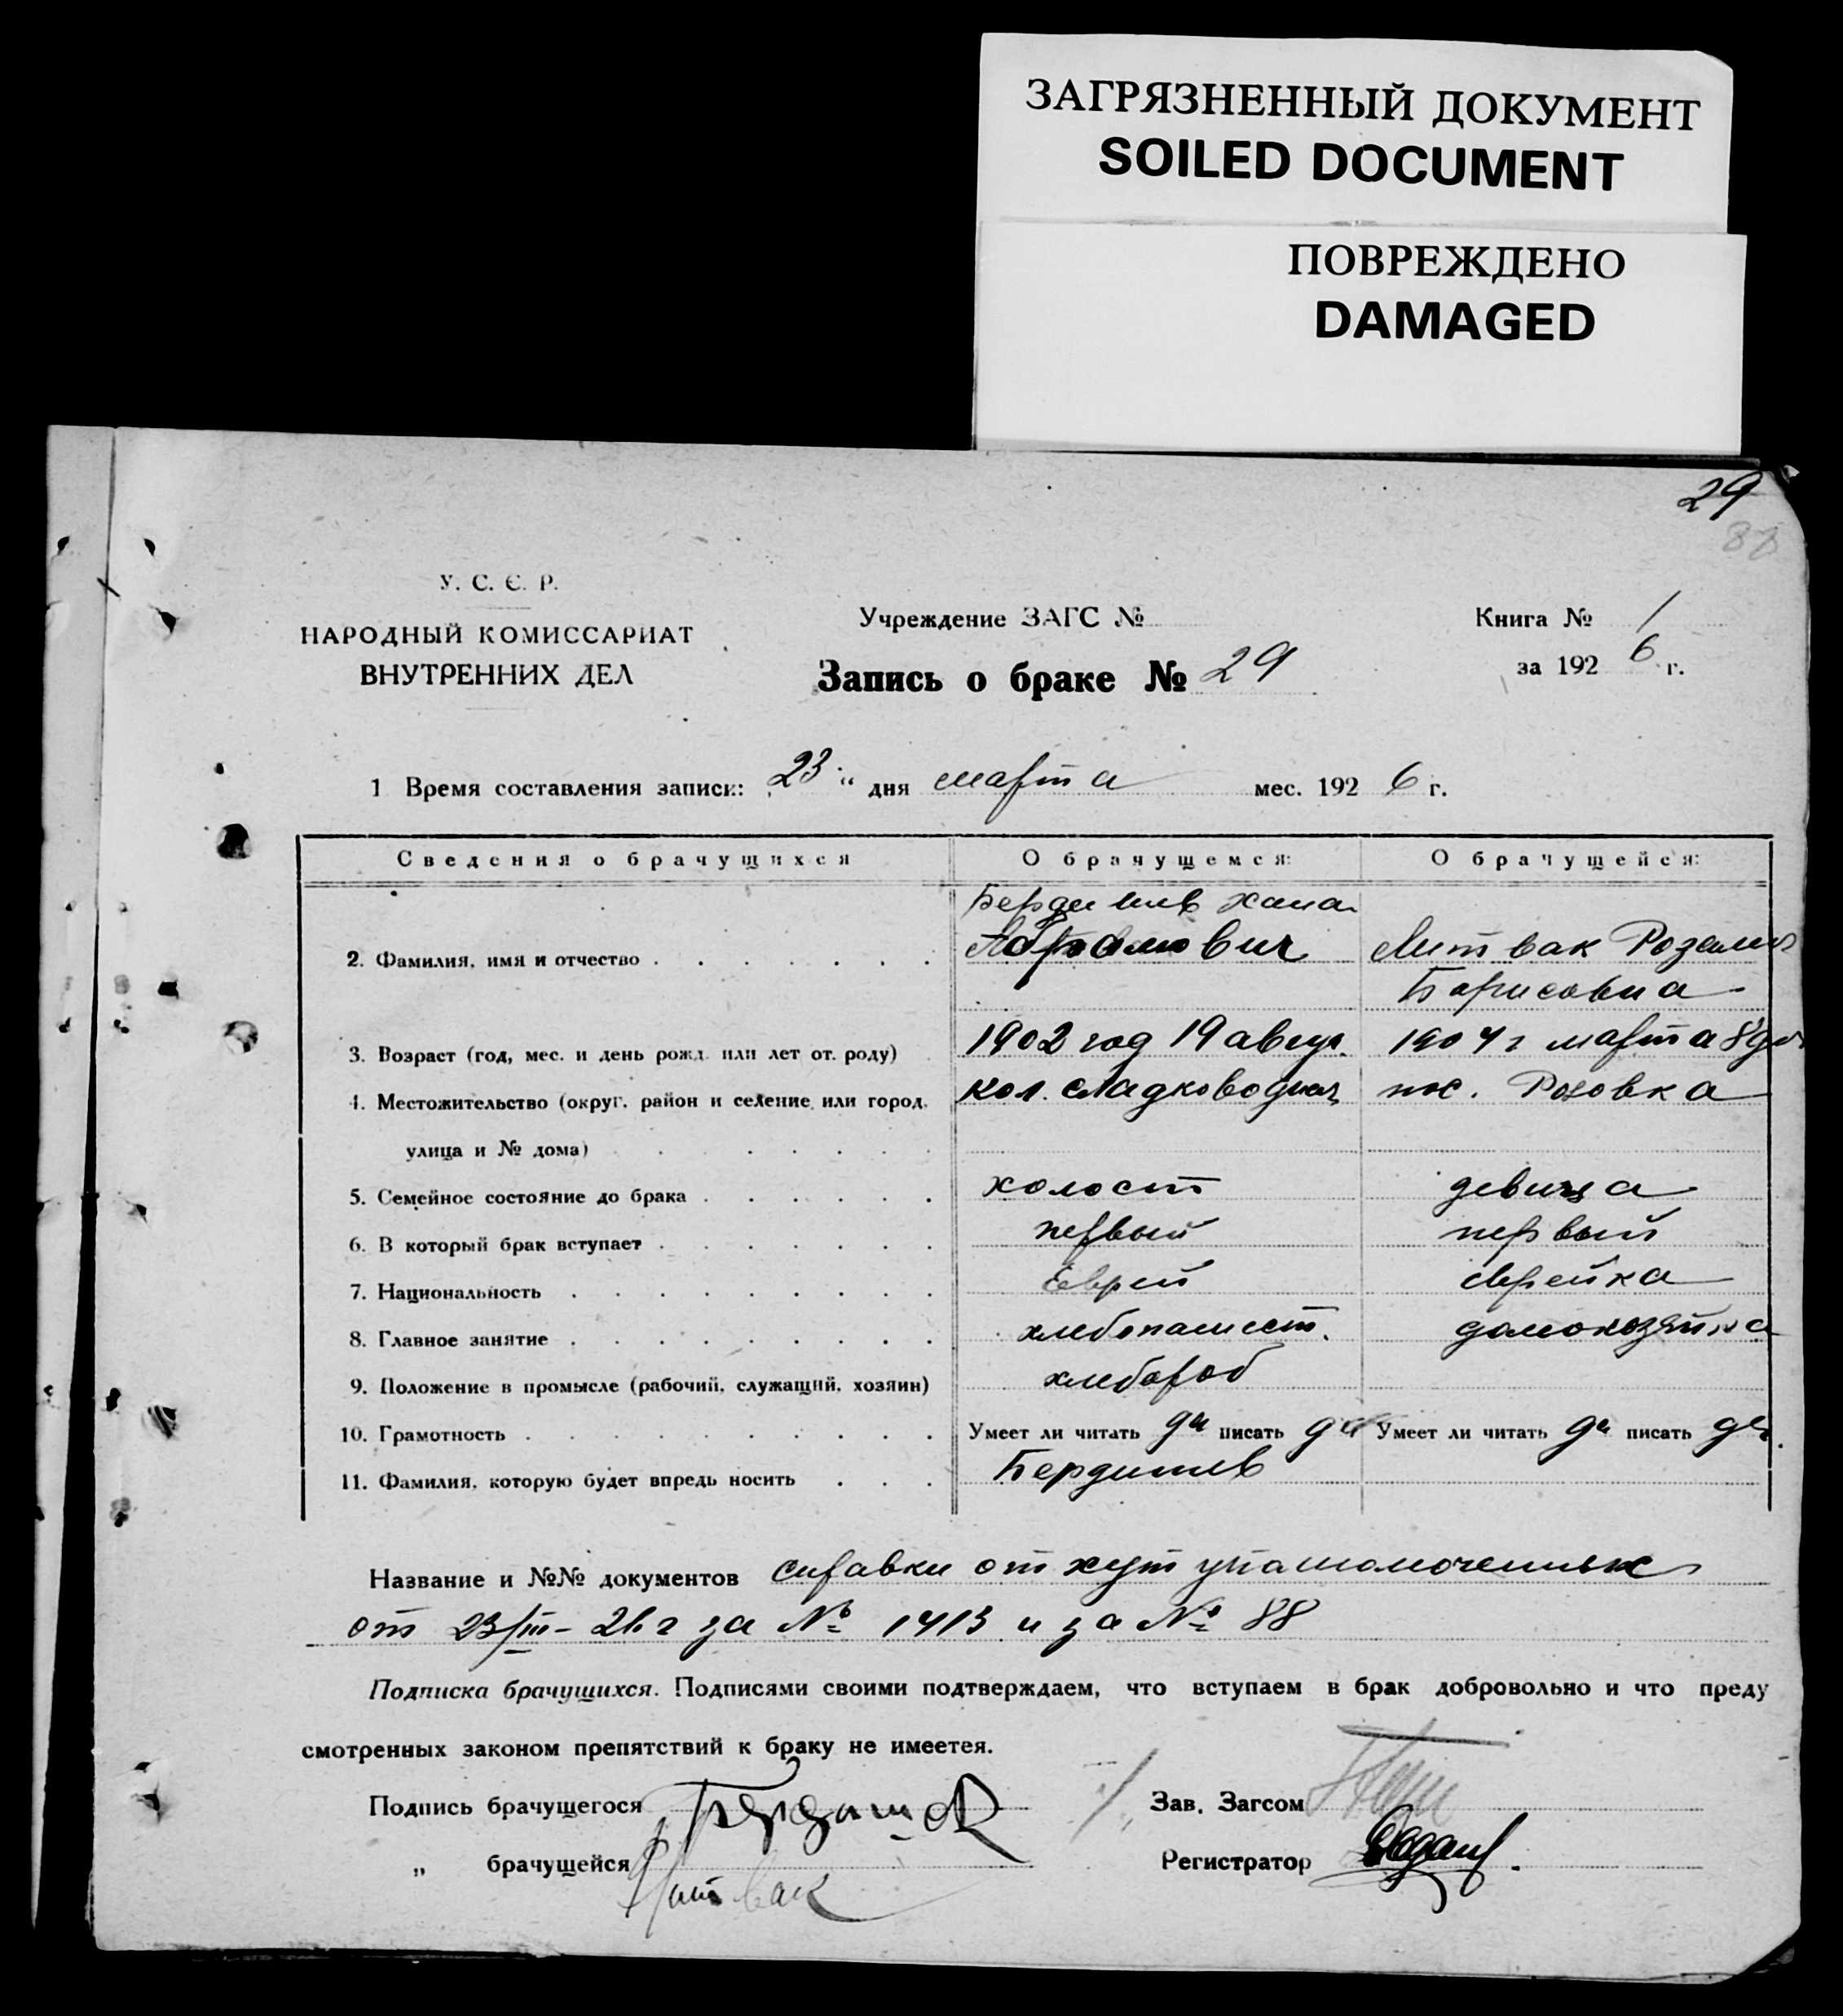 ЗАГРЯЗНЕННЫЙ ДОКУМЕНТ
SOILED DOCUMENT
ПОВРЕЖДЕНО
DAMAGED
29
88
У. С. Є. Р.
НАРОДНЫЙ КОМИССАРИАТ
ВНУТРЕННИХ ДЕЛ
Учреждение ЗАГС №
Запись о браке № 29
Книга № 1
за 1926 г.
1 Время составления записи: 23 " дня марта мес. 1926 г.
Сведения о брачущихся О брачущемся: О брачущейся:
2. Фамилия, имя и отчество
Бердичев Хана
Абрамович
Литвак Розалия
Борисовна
3. Возраст (год, мес. и день рожд. или лет от. роду) 1902 год 19 авгус. 1904 г марта 8 дня
4. Местожительство (округ, район и селение, или город, кол. Сладководная пос. Розовка
улица и № дома)
5. Семейное состояние до брака холост девица
6. В который брак вступает первый первый
7. Национальность Еврей еврейка
8. Главное занятие хлебопашест. домохозяйка
9. Положение в промысле (рабочий, служащий, хозяин) хлебороб
10. Грамотность Умеет ли читать да писать да Умеет ли читать да писать да.
11. Фамилия, которую будет впредь носить
Название и №№ документов справки от
от 23/III – 26 г за № 1413 и за № 88
Подписка брачущихся. Подписями своими подтверждаем, что вступаем в брак добровольно и что преду
смотренных законом препятствий к браку не имеется.
Подпись брачущегося
Зав. Загсом
„ брачущейся Литвак
Регистратор